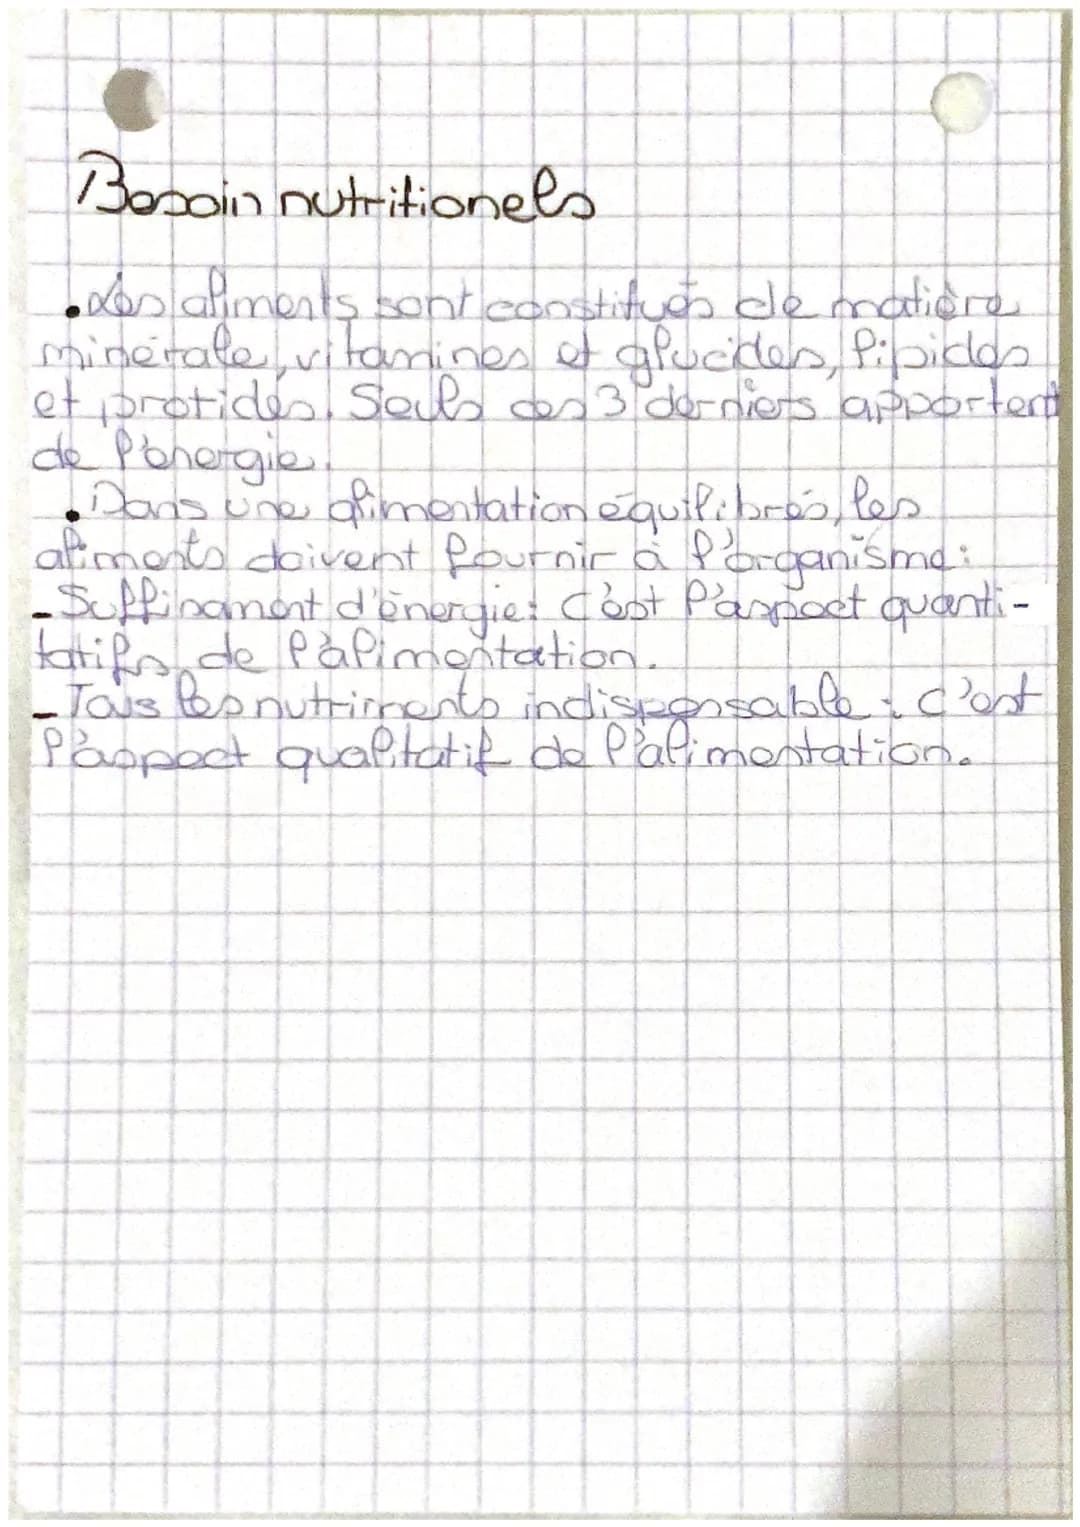 Besoin nutritionels
• Les aliments sont constitués de matière
minérale, vitamines et glucides, lipides
et protides. Seuls ces 3 derniers apportent
de l'énergie.
• Dans une alimentation équilibrés, les
aliments doivent fournir à l'organisme :
- Suffisament d'énergie : C'est l'aspect quanti-
tatifs de l'alimentation.
- Tous les nutriments indispensable : c'est
l'aspect qualitatif de l'alimentation.